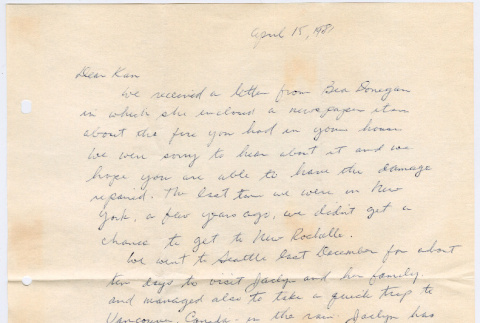 April 15, 1981
Dear Kan
We received a letter from Bea Donegan
in which she enclosed a newspaper item
about the fire you had in your house.
We were sorry to hear about it and we
hope you are able to have the damage
repaired. The last time we were in New
York, a few years ago, we didn't get a
chance to get to New Rochelle.
We went to Seattle last December for about
ten days to visit Jaclyn and her family
and managed also to take a quick trip to
Vancouver, Canada - in the rain. Jaclyn has